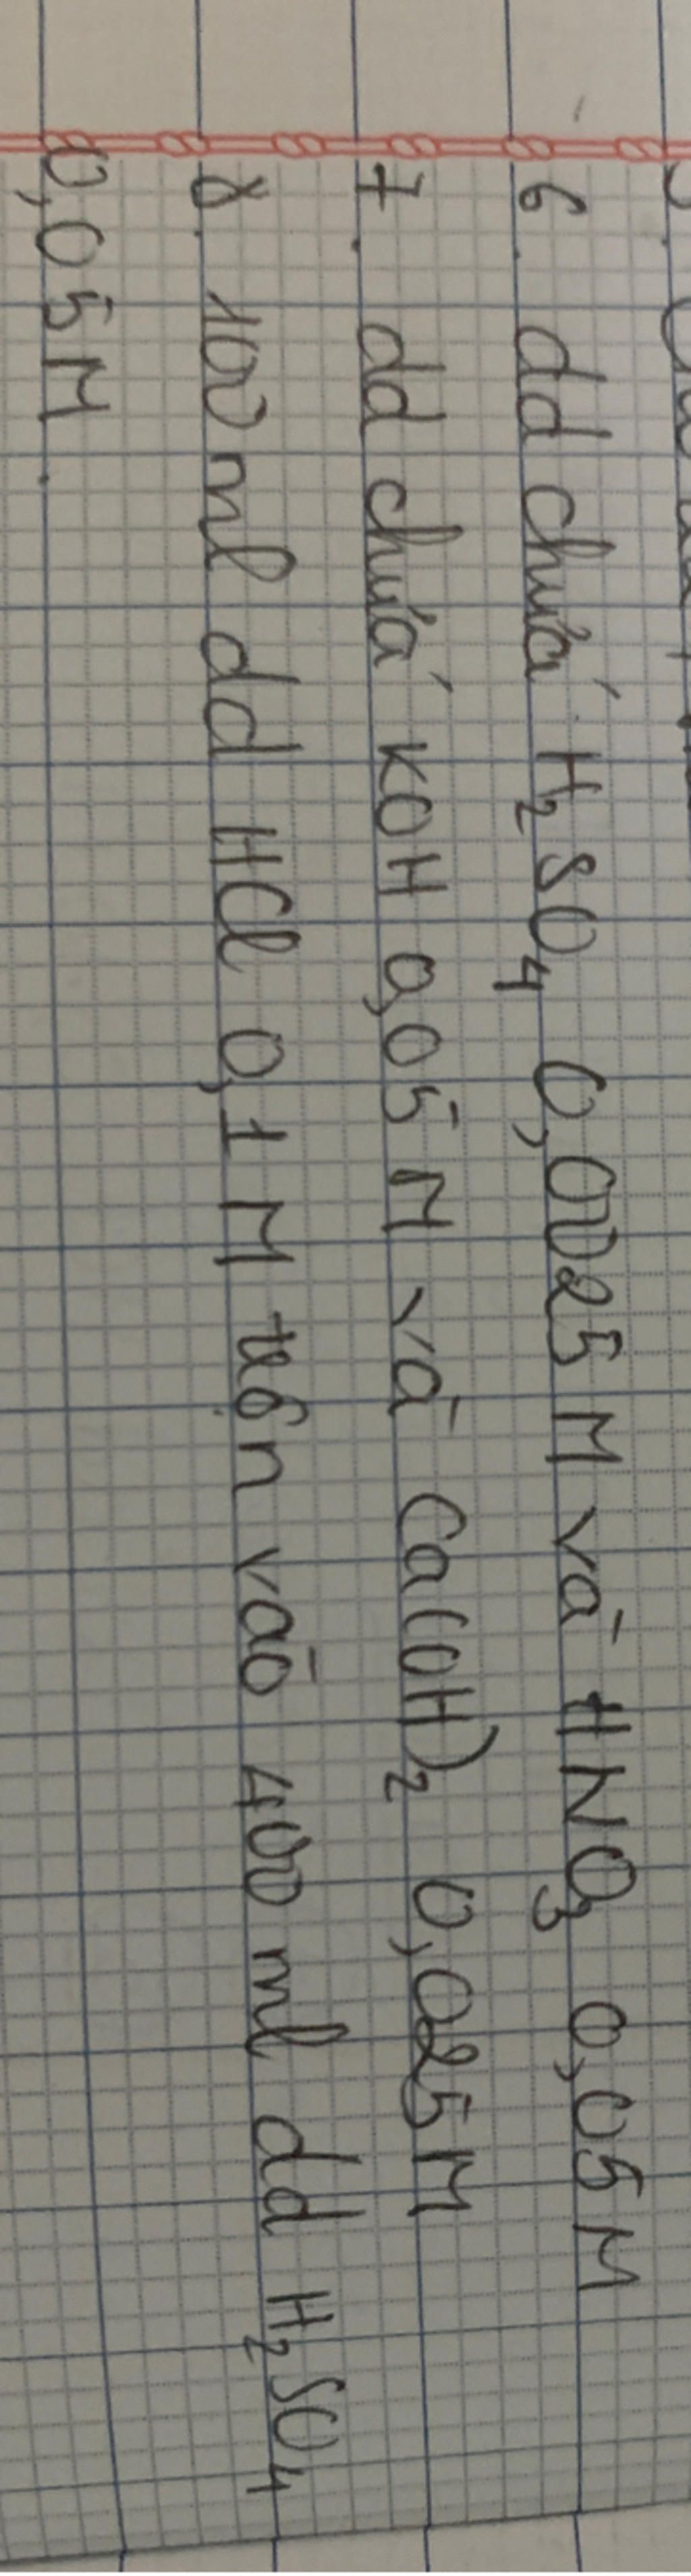 6. dd chứa H₂SO₄ 0,0025 M và HNO₃ 0,05 M
7. dd chứa KOH 0,05 M và Ca(OH)₂ 0,025M
8. 100 ml dd HCl 0,1 M trộn vào 400 ml dd H₂SO₄
0,05M.